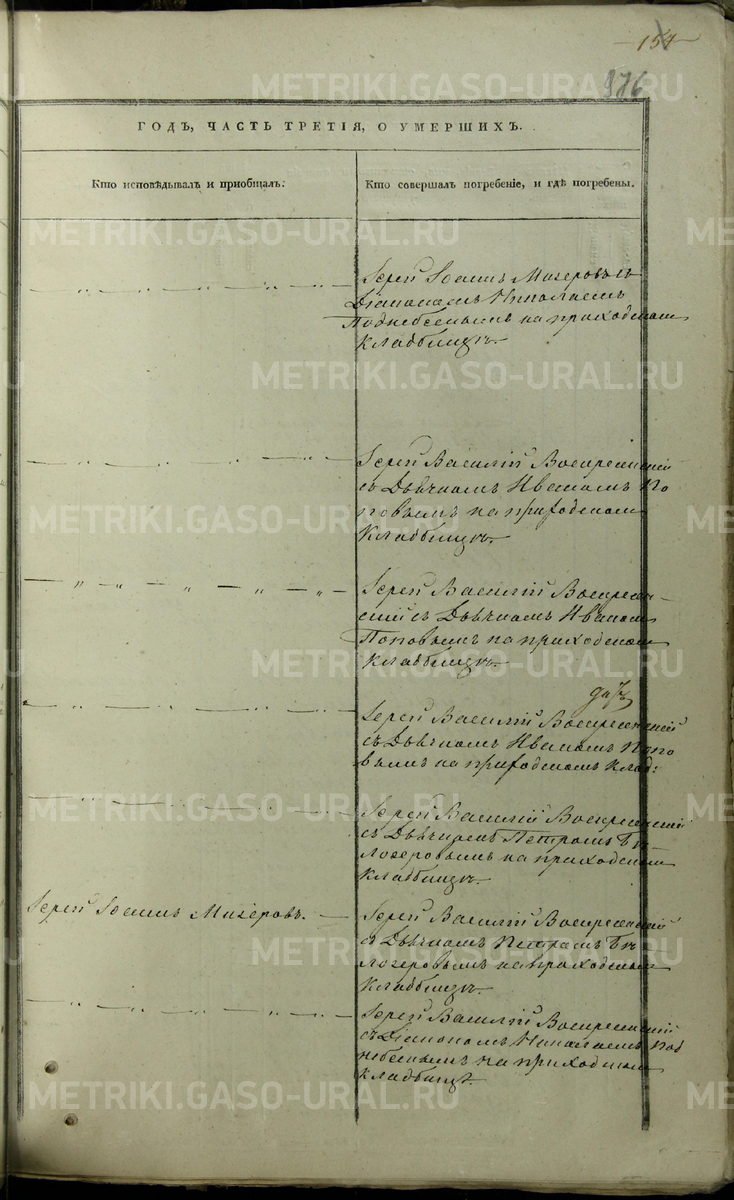 154
176
ГОДЪ, ЧАСТЬ ТРЕТІЯ, О УМЕРШИХЪ.
Кто исповѣдывалъ и приобщалъ.
Кто совершалъ погребеніе, и гдѣ погребены.
Іерей Іоаннъ Мизеровъ съ
Діакономъ Николаемъ
Поднебеснымъ на приходскомъ
кладбищѣ.
Іерей Василій Воскресенскій
съ Дьячкомъ Иваномъ По
повымъ на приходскомъ
Кладбищѣ.
Іерей Василій Воскресен-
скій съ Дьячкомъ Иваномъ
Поповымъ на приходскомъ
Кладбищѣ.
Іерей Василій Воскресенскій
съ Дьячкомъ Иваномъ Попо
вымъ на приходскомъ Клад:
Іерей Василій Воскресенскій
съ Дьячкомъ Петромъ Бѣ-
лозеровымъ на приходскомъ
Кладбищѣ.
Іерей Іоаннъ Мизеровъ.
Іерей Василій Воскресенскій
съ Дьячкомъ Петромъ Бѣ-
лозеровымъ на приходскомъ
Кладбищѣ.
Іерей Василій Воскресенскій
съ Діакономъ Николаемъ Под
небеснымъ на приходскомъ
кладбищѣ.
METRIKI.GASO-URAL.RU